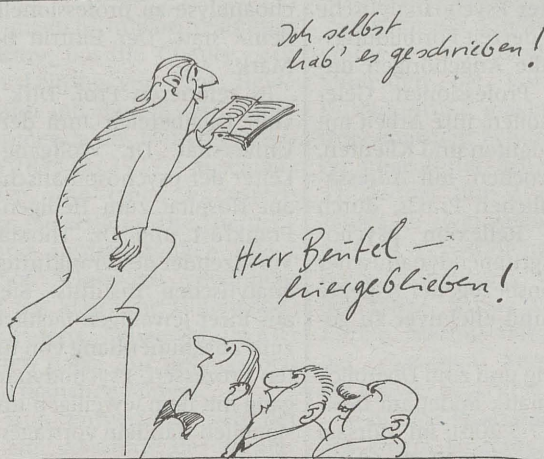 Ich selbst
hab' es geschrieben!
Herr Beutel –
hiergeblieben!